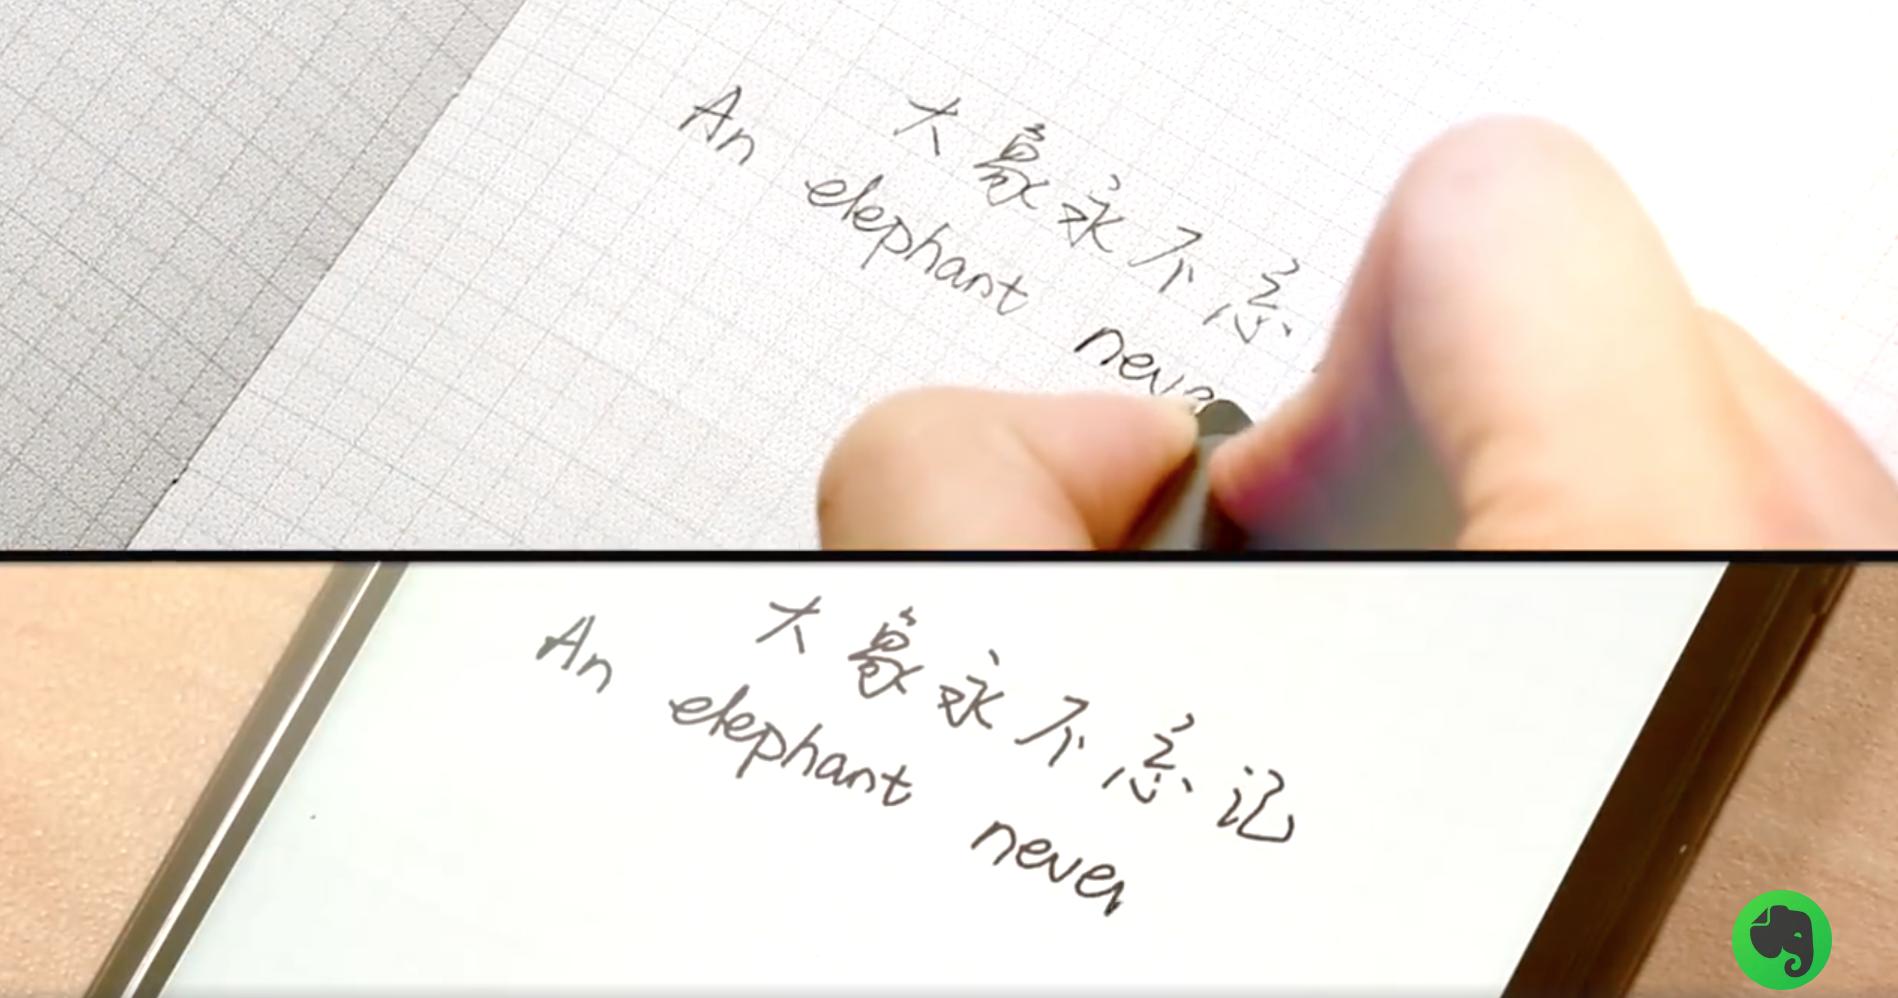 大象永不忘
An elephant neve
大象永不忘记
An elephant never